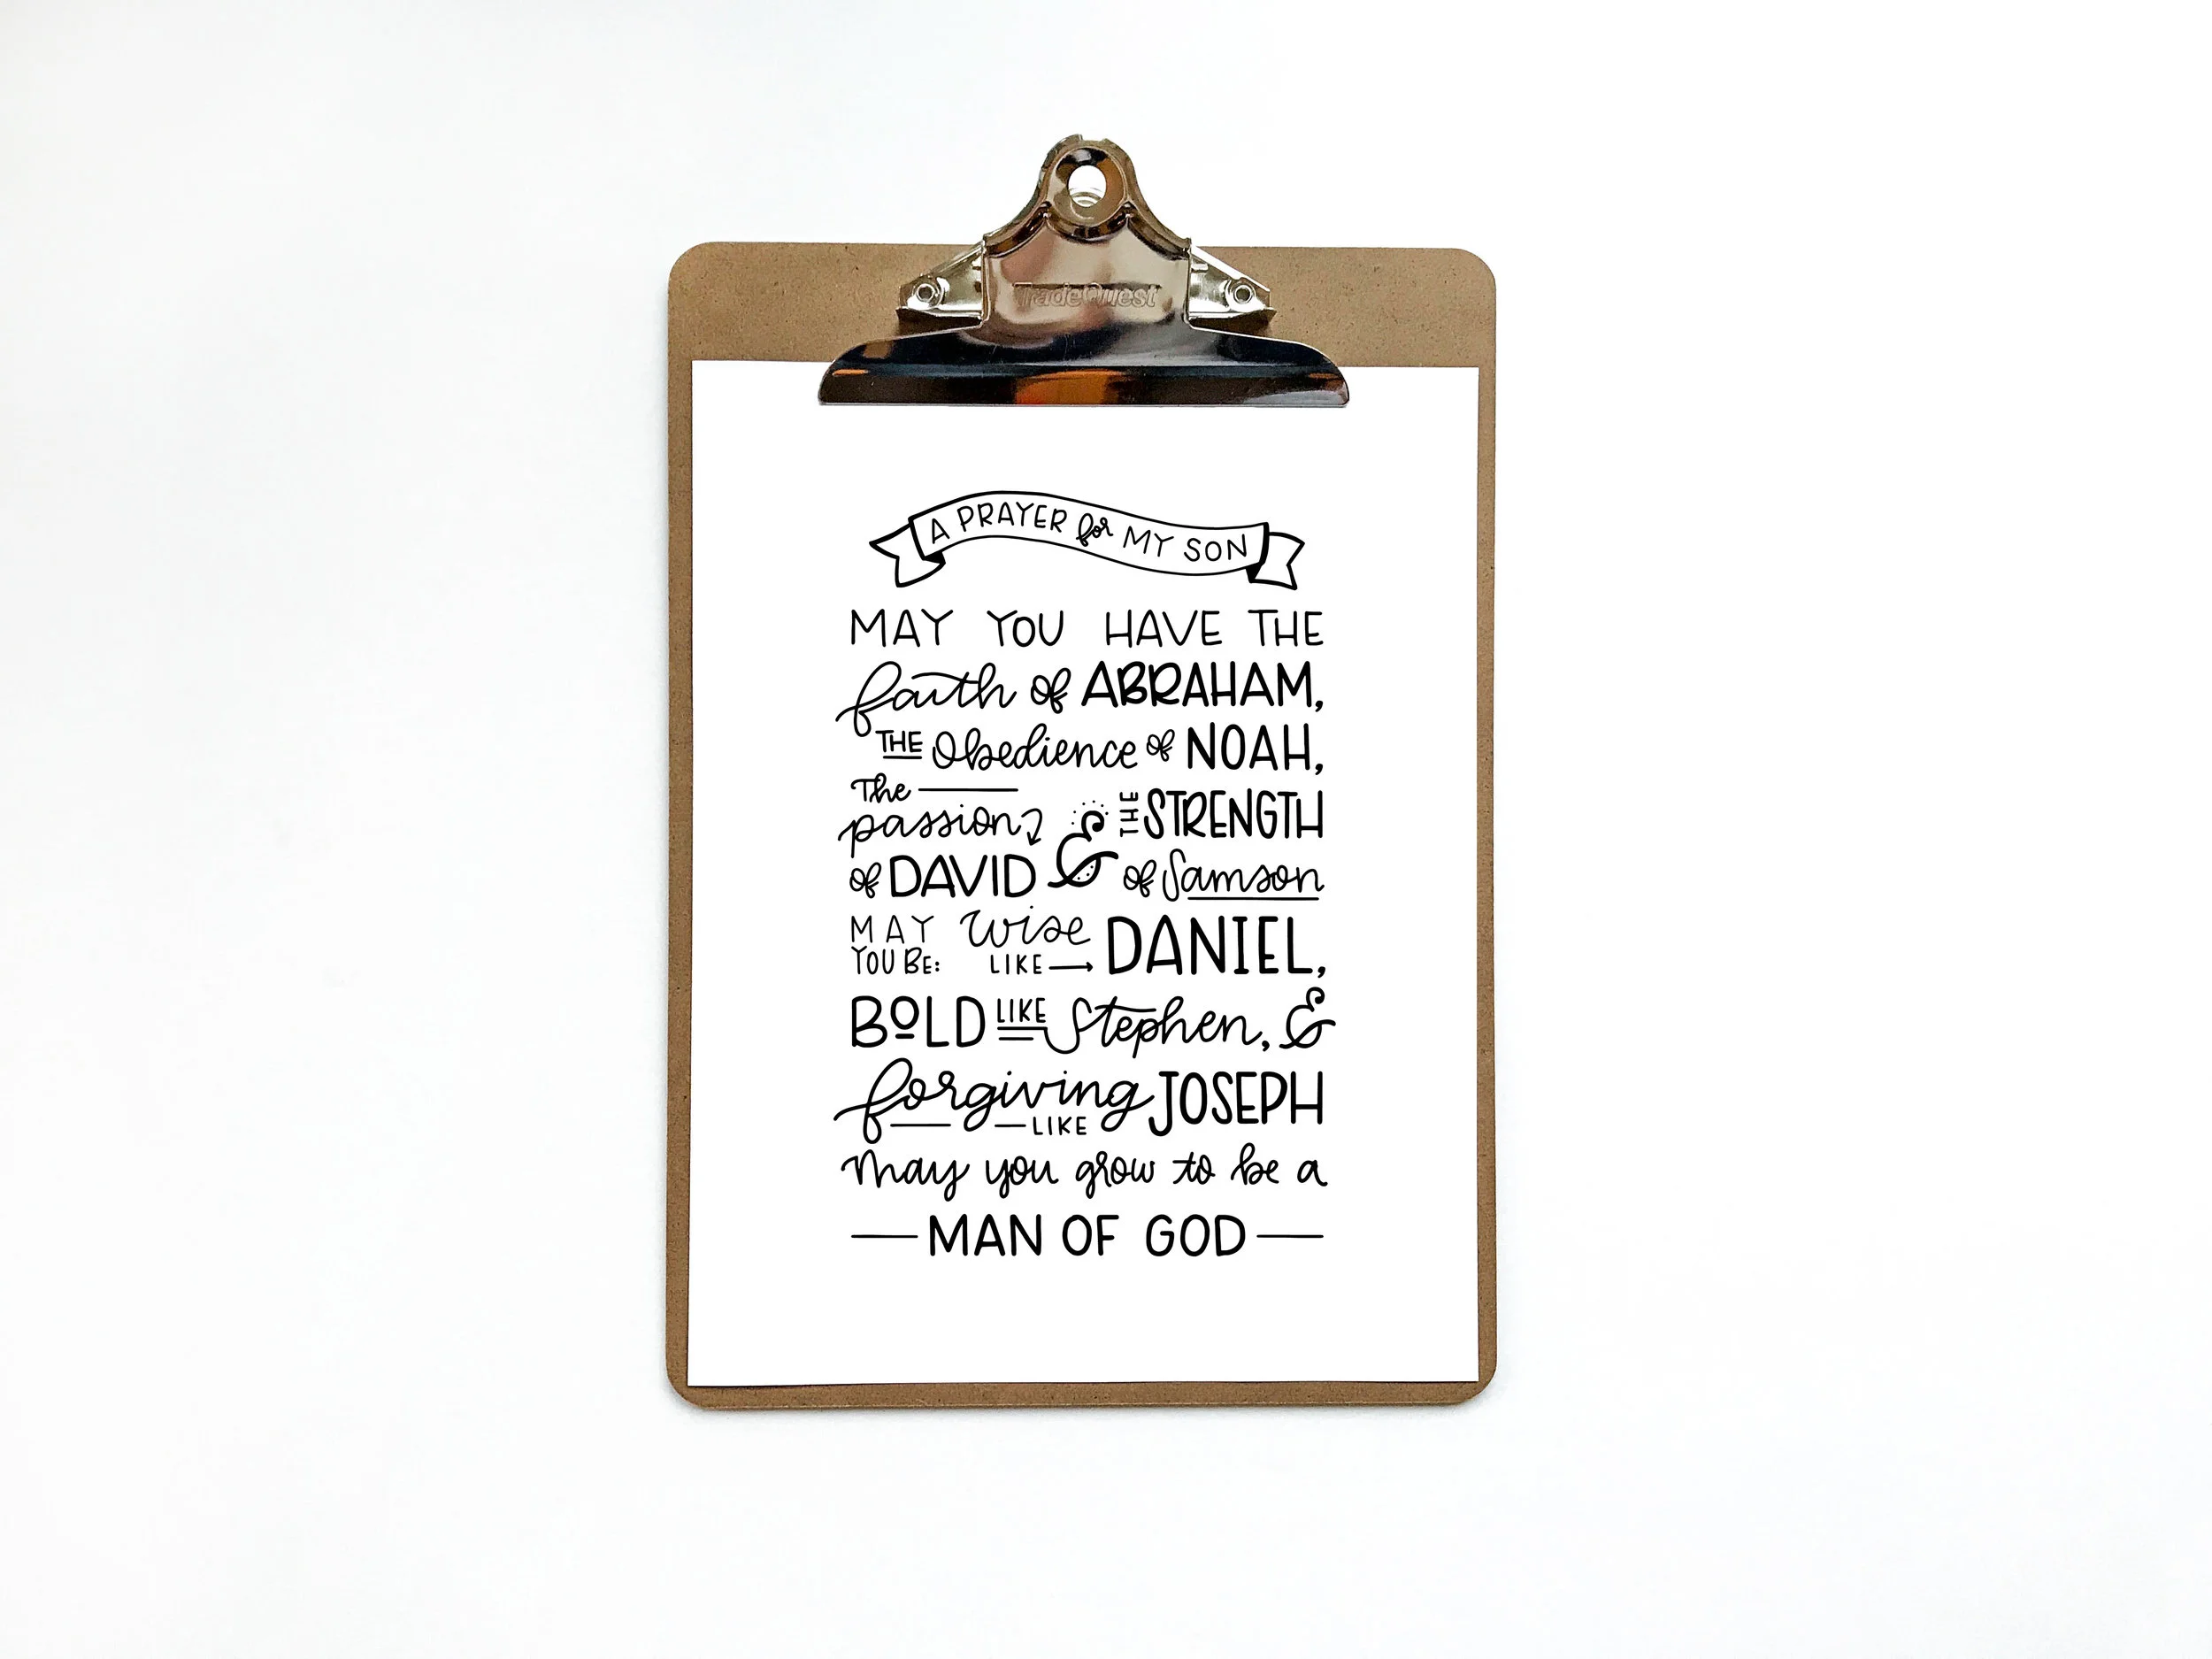 TradeQuest
A PRAYER for MY SON
MAY YOU HAVE THE
faith of ABRAHAM,
THE Obedience of NOAH,
The passion of DAVID & THE STRENGTH of Samson
MAY YOU BE: wise LIKE DANIEL,
BOLD LIKE Stephen, &
forgiving LIKE JOSEPH
may you grow to be a
MAN OF GOD